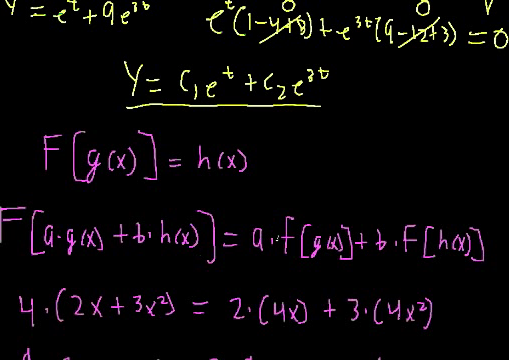 Y = e^t + 9e^3t e^t(1-4+3) + e^3t(9-12+3) = 0
0 0
Y = C₁e^t + C₂e^3t
F[g(x)] = h(x)
F[a·g(x) + b·h(x)] = a·f[g(x)] + b·F[h(x)]
4·(2x + 3x²) = 2·(4x) + 3·(4x²)